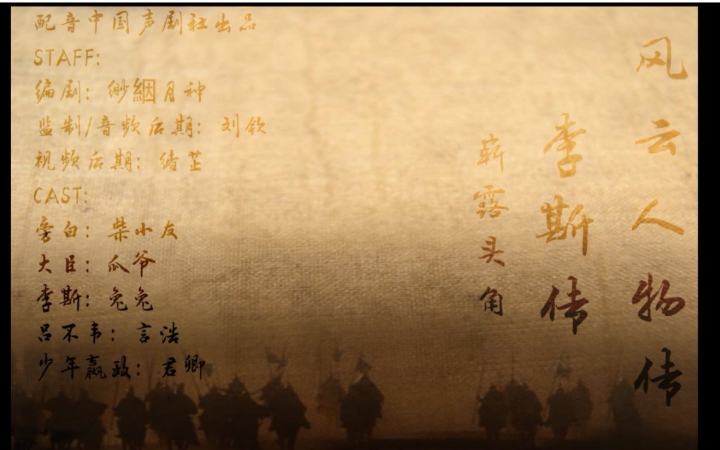 配音中国声剧社出品
STAFF:
编剧：缈絪月神
监制/音频后期：刘钦
视频后期：绮芷
CAST:
旁白：柴小友
大臣：瓜爷
李斯：兔兔
吕不韦：言浩
少年嬴政：君卿
风云人物传
李斯传
崭露头角